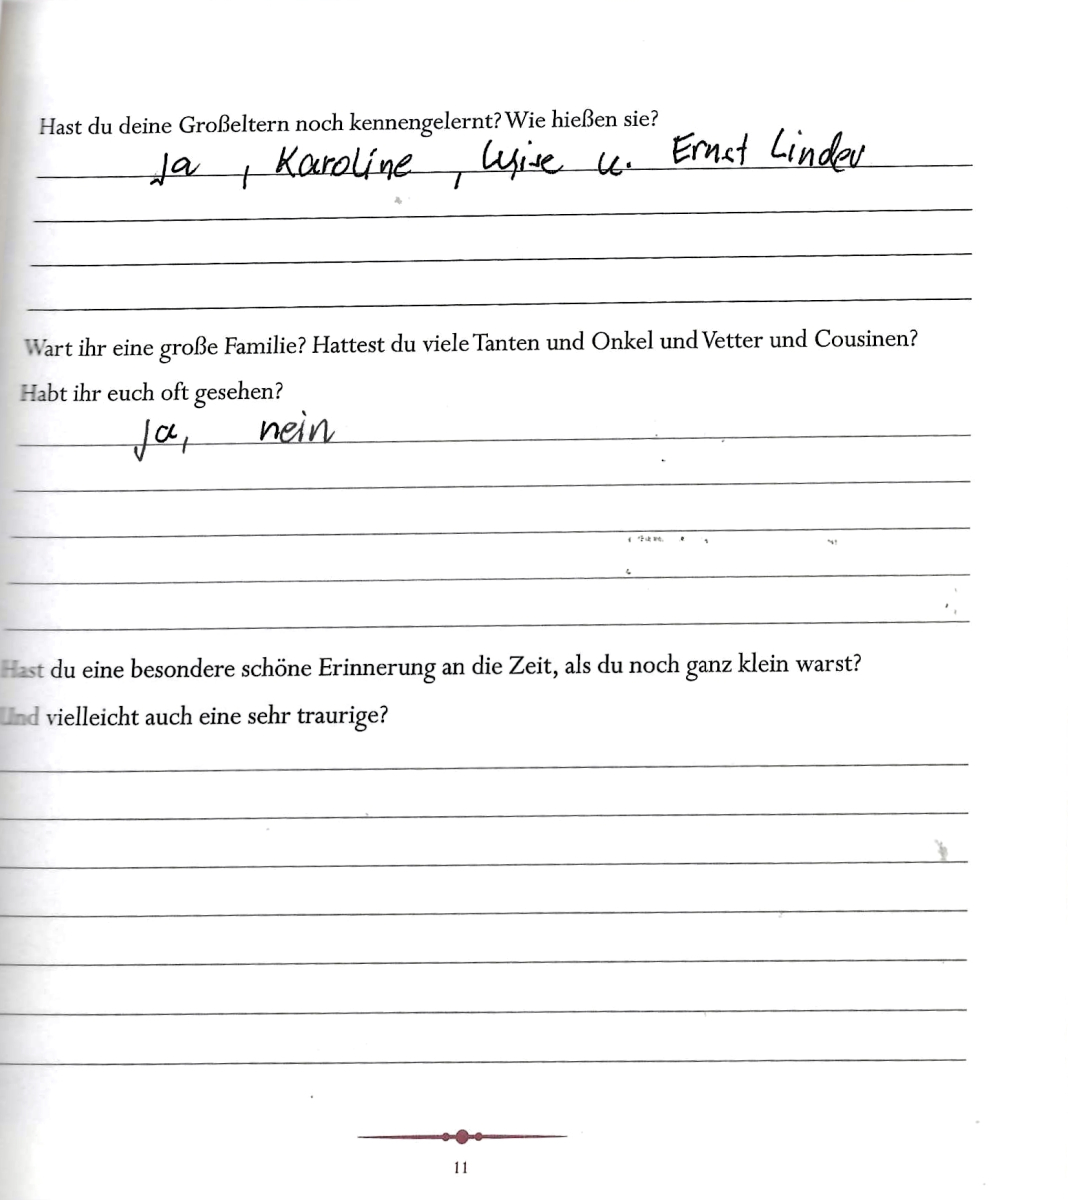 Hast du deine Großeltern noch kennengelernt? Wie hießen sie?
Ja, Karoline, Luise u. Ernst Linder
Wart ihr eine große Familie? Hattest du viele Tanten und Onkel und Vetter und Cousinen?
Habt ihr euch oft gesehen?
Ja, nein
Hast du eine besondere schöne Erinnerung an die Zeit, als du noch ganz klein warst?
Und vielleicht auch eine sehr traurige?
11